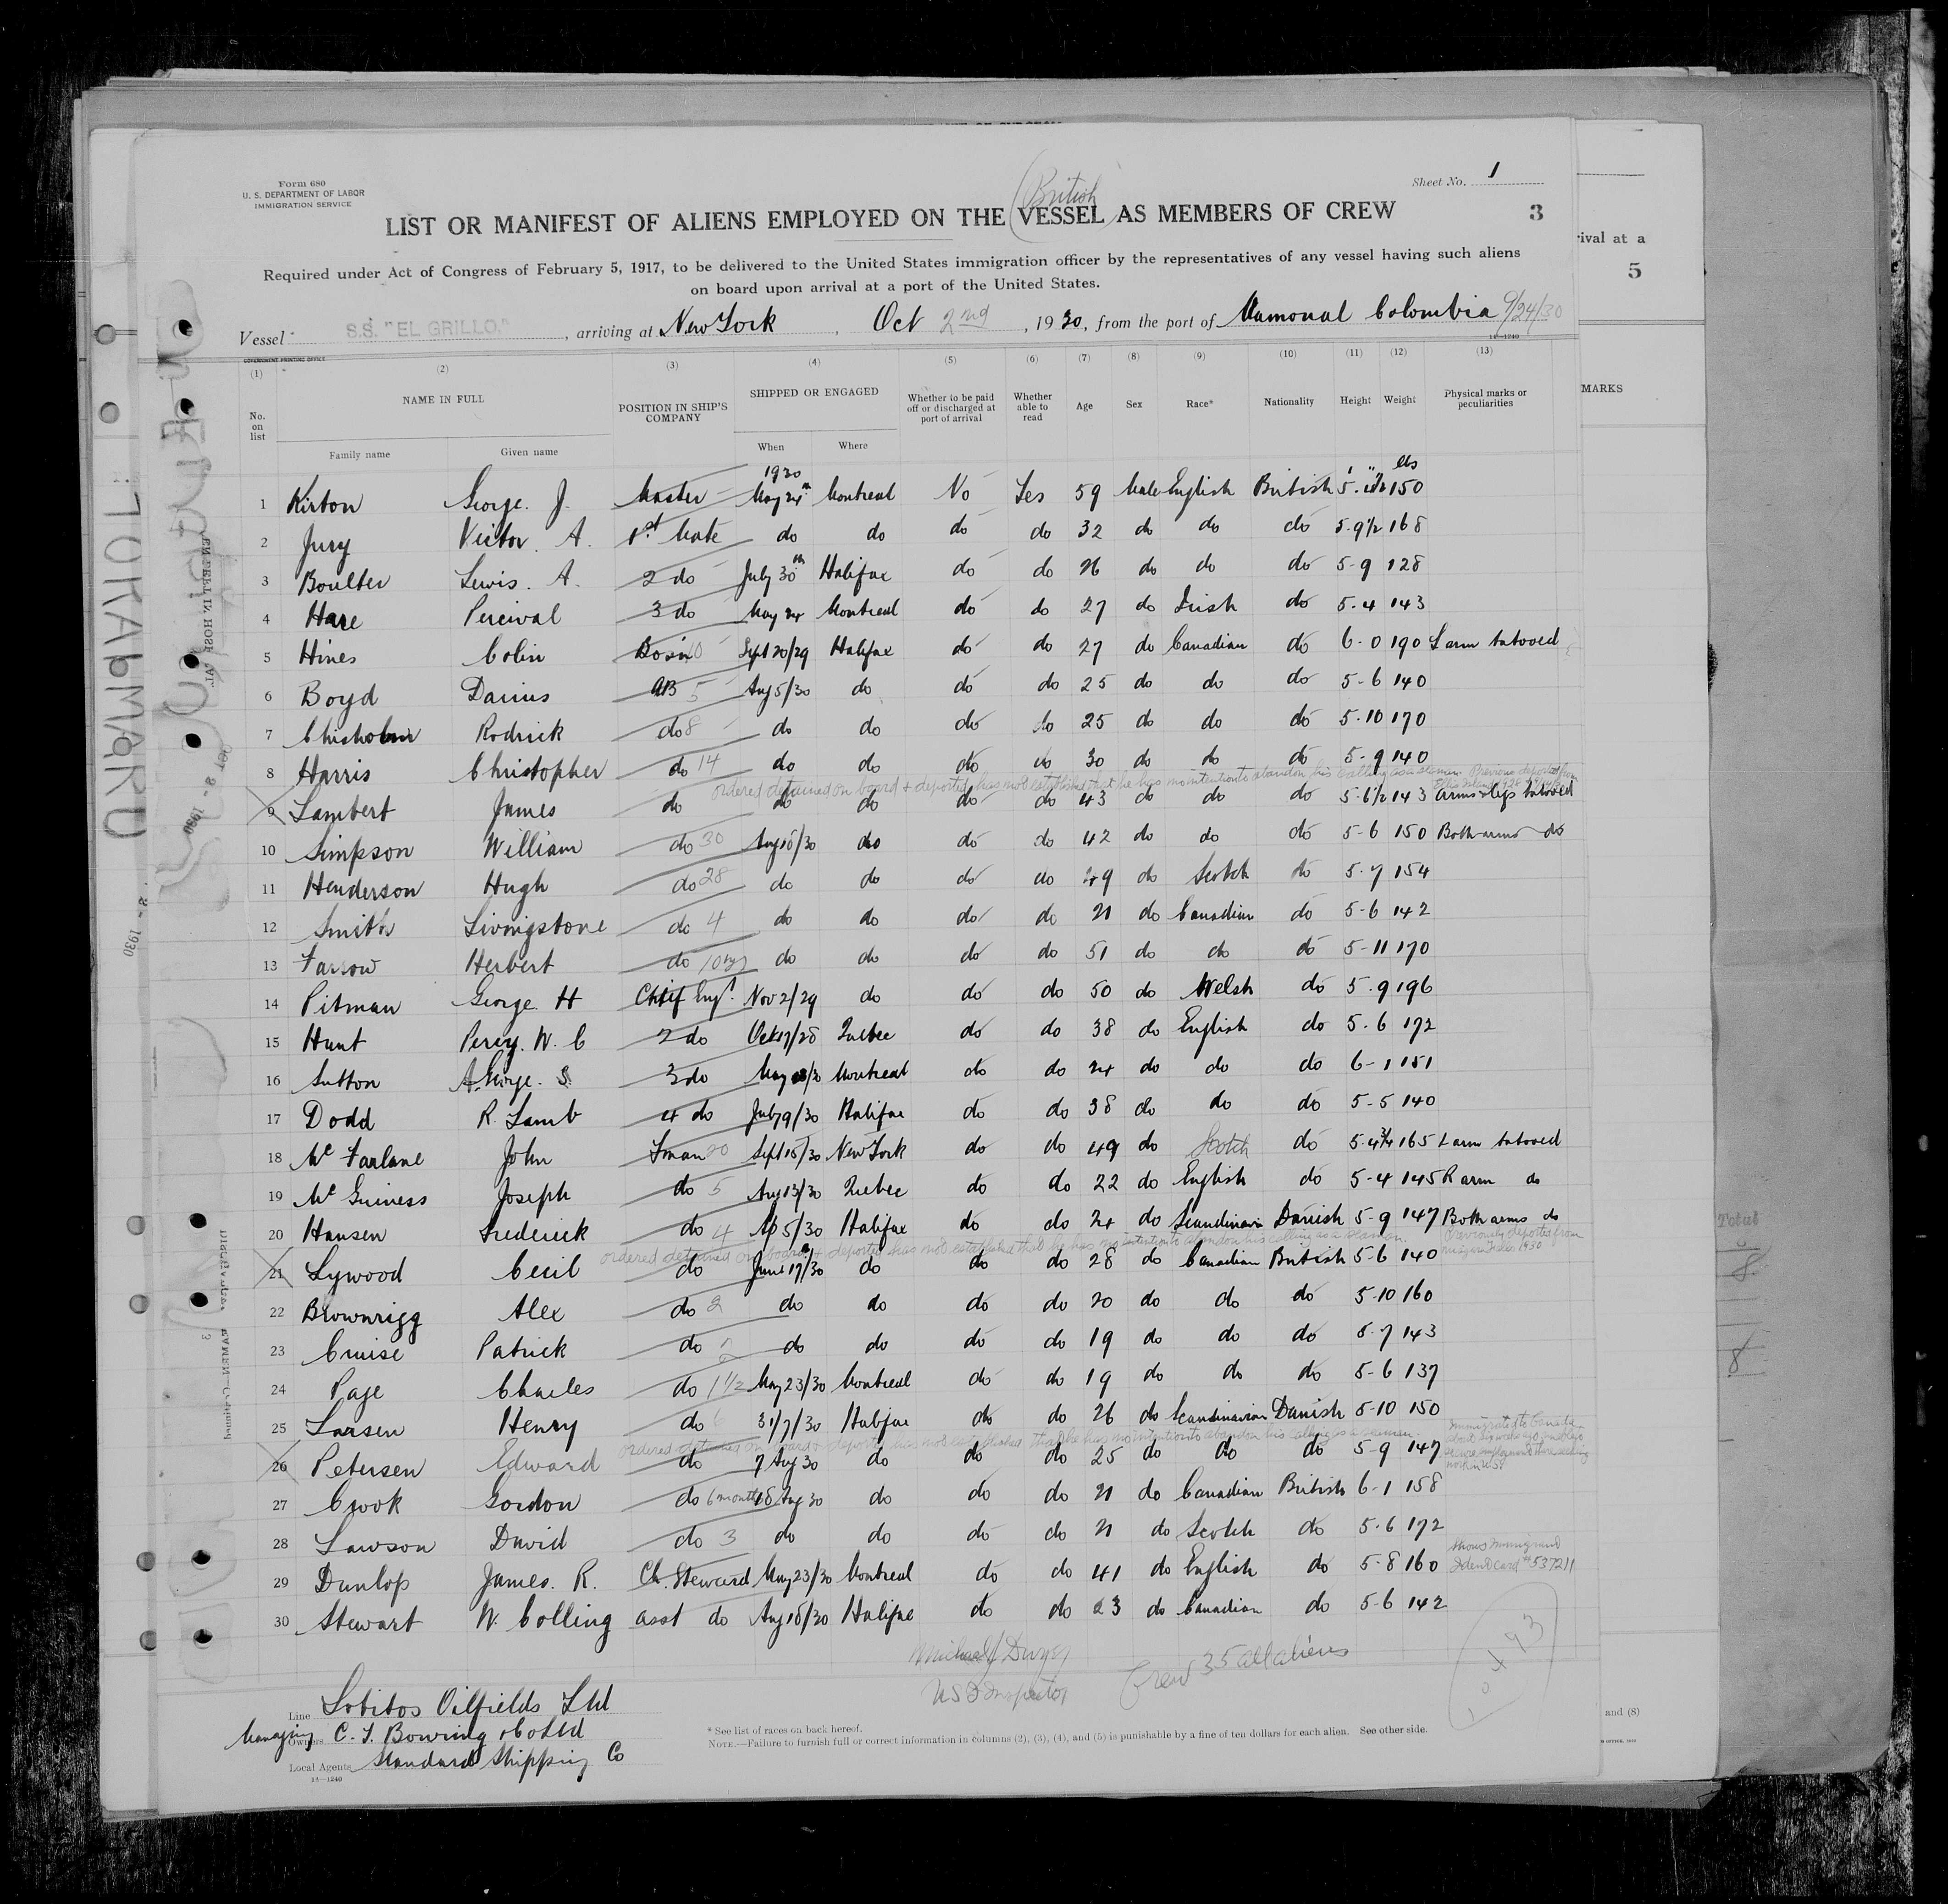 Form 680
U. S. DEPARTMENT OF LABOR
IMMIGRATION SERVICE
Sheet No. 1
British
LIST OR MANIFEST OF ALIENS EMPLOYED ON THE VESSEL AS MEMBERS OF CREW
3
Required under Act of Congress of February 5, 1917, to be delivered to the United States immigration officer by the representatives of any vessel having such aliens
on board upon arrival at a port of the United States.
Vessel S.S. "EL GRILLO." , arriving at New York , Oct 2nd , 1930, from the port of Mamonal Colombia 9/24/30
GOVERNMENT PRINTING OFFICE
14-1240
(1) (2) (3) (4) (5) (6) (7) (8) (9) (10) (11) (12) (13)
No. on list NAME IN FULL POSITION IN SHIP'S COMPANY SHIPPED OR ENGAGED Whether to be paid off or discharged at port of arrival Whether able to read Age Sex Race* Nationality Height Weight Physical marks or peculiarities
Family name Given name When Where
1930 lbs
1 Kirton George. J. Master May 24th Montreal No Yes 59 Male English British 150
2 Jury Victor. A. 1st Mate do do do do 32 do do do 5-9 1/2 168
3 Boulter Lewis. A. 2 do July 30th Halifax do do 26 do do do 5-9 128
4 Hare Percival 3 do May 24 Montreal do do 27 do Irish do 5-4 143
5 Hines Colin Bosn 10 Sept 20/29 Halifax do do 27 do Canadian do 6-0 190 L arm tatooed
6 Boyd Darius AB 5 Aug 5/30 do do do 25 do do do 5-6 140
7 Chisholm Rodrick do 8 do do do do 25 do do do 5-10 170
8 Harris Christopher do 14 do do do do 30 do do do 5-9 140
ordered detained on board + deported, has not established that he has no intention to abandon his calling as a seaman. Previous deported from
9 Lambert James do do do do do 43 do do do 5-6 1/2 143 arms & legs tatooed
10 Simpson William do 30 Aug 18/30 do do do 42 do do do 5-6 150 Both arms do
11 Henderson Hugh do 28 do do do do 49 do Scotch do 5-7 154
12 Smith Livingstone do 4 do do do do 21 do Canadian do 5-6 142
13 Farrow Herbert do 10 do do do do 51 do do do 5-11 170
14 Pitman George H Chief Engr. Nov 2/29 do do do 50 do Welsh do 5-9 196
15 Hunt Percy. W. C 2 do Oct 17/28 Quebec do do 38 do English do 5-6 172
16 Sutton A. George. S. 3 do May Montreal do do 24 do do do 6-1 151
17 Dodd R. Lamb 4 do July 9/30 Halifax do do 38 do do do 5-5 140
18 Mc Farlane John Fman 20 Sept 15/30 New York do do 49 do Scotch do 5-4 3/4 165 L arm tatooed
19 Mc Guiness Joseph do 5 Aug 13/30 Quebec do do 22 do English do 5-4 145 R arm do
20 Hansen Frederick do 4 Ap 5/30 Halifax do do 24 do Scandinavian Danish 5-9 147 Both arms do
ordered detained on board + deported, has not established that he has no intention to abandon his calling as a seaman. Previously deported from
Niagara Falls 1930
21 Lywood Cecil do June 17/30 do do do 28 do Canadian British 5-6 140
22 Brownrigg Alex do 2 do do do do 20 do do do 5-10 160
23 Cruise Patrick do do do do do 19 do do do 5-7 143
24 Page Charles do 1 1/2 May 23/30 Montreal do do 19 do do do 5-6 137
25 Larsen Henry do 6 31/7/30 Halifax do do 26 do Scandinavian Danish 5-10 150
ordered detained on board + deported, has not established that he has no intention to abandon his calling as a seaman.
26 Petersen Edward do 7 Aug 30 do do do 25 do do do 5-9 147
27 Crook Gordon do 6 months 18 Aug 30 do do do 21 do Canadian British 6-1 158
28 Lawson David do 3 do do do do 21 do Scotch do 5-6 172
29 Dunlop James. R. Ch. Steward May 23/30 Montreal do do 41 do English do 5-8 160 shows Immigrant Ident card #537211
30 Stewart W. Colling asst do Aug 18/30 Halifax do do 23 do Canadian do 5-6 142
Michael J Dwyer
US Inspector
Crew 35 all aliens
Line Lobitos Oilfields Ltd
Managing Owners C. T. Bowring & Co Ltd
Local Agents Standard Shipping Co
14-1240
* See list of races on back hereof.
NOTE.—Failure to furnish full or correct information in columns (2), (3), (4), and (5) is punishable by a fine of ten dollars for each alien. See other side.
rival at a
5
MARKS
Total
8
8
and (8)